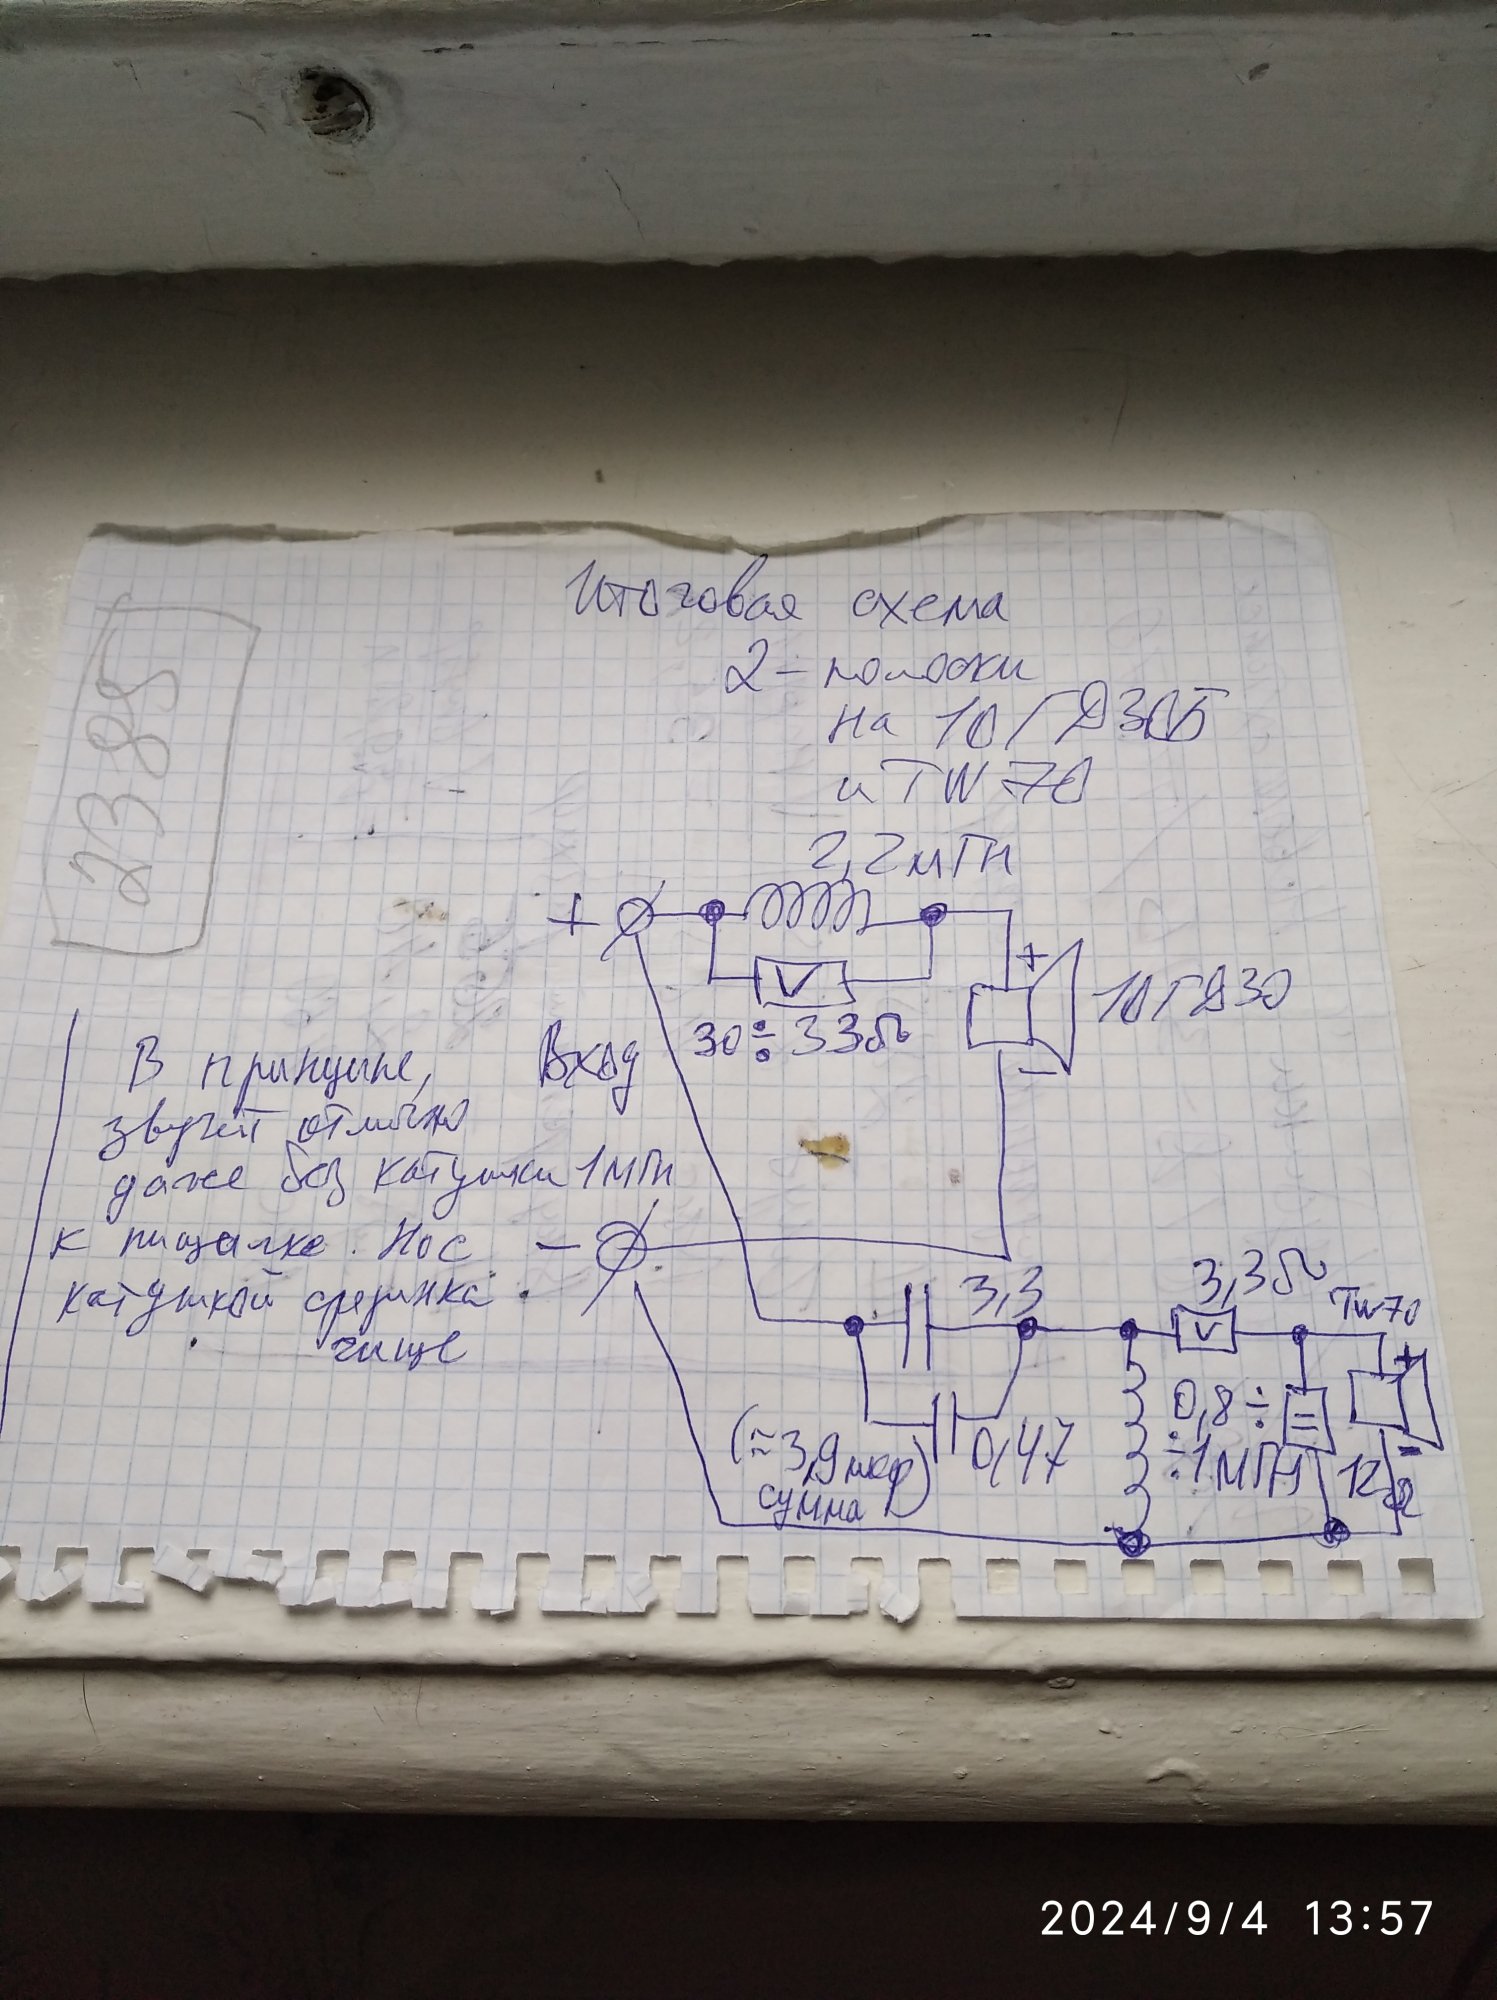 Итоговая схема
2-полоски
на 10/ГД30Б
и TW 70
2385
2,2мГн
+
+
10ГД30
30÷33Ω
Вход
В принципе,
звучит отлично
даже без катушки 1мГн
к пищалке. Но с
катушкой срединка
чище
-
-
3,3
3,3Ω
TW70
+
-
0,8÷
÷1мГн
12Ω
0,47
(≈3,9мкф)
сумма
2024/9/4 13:57